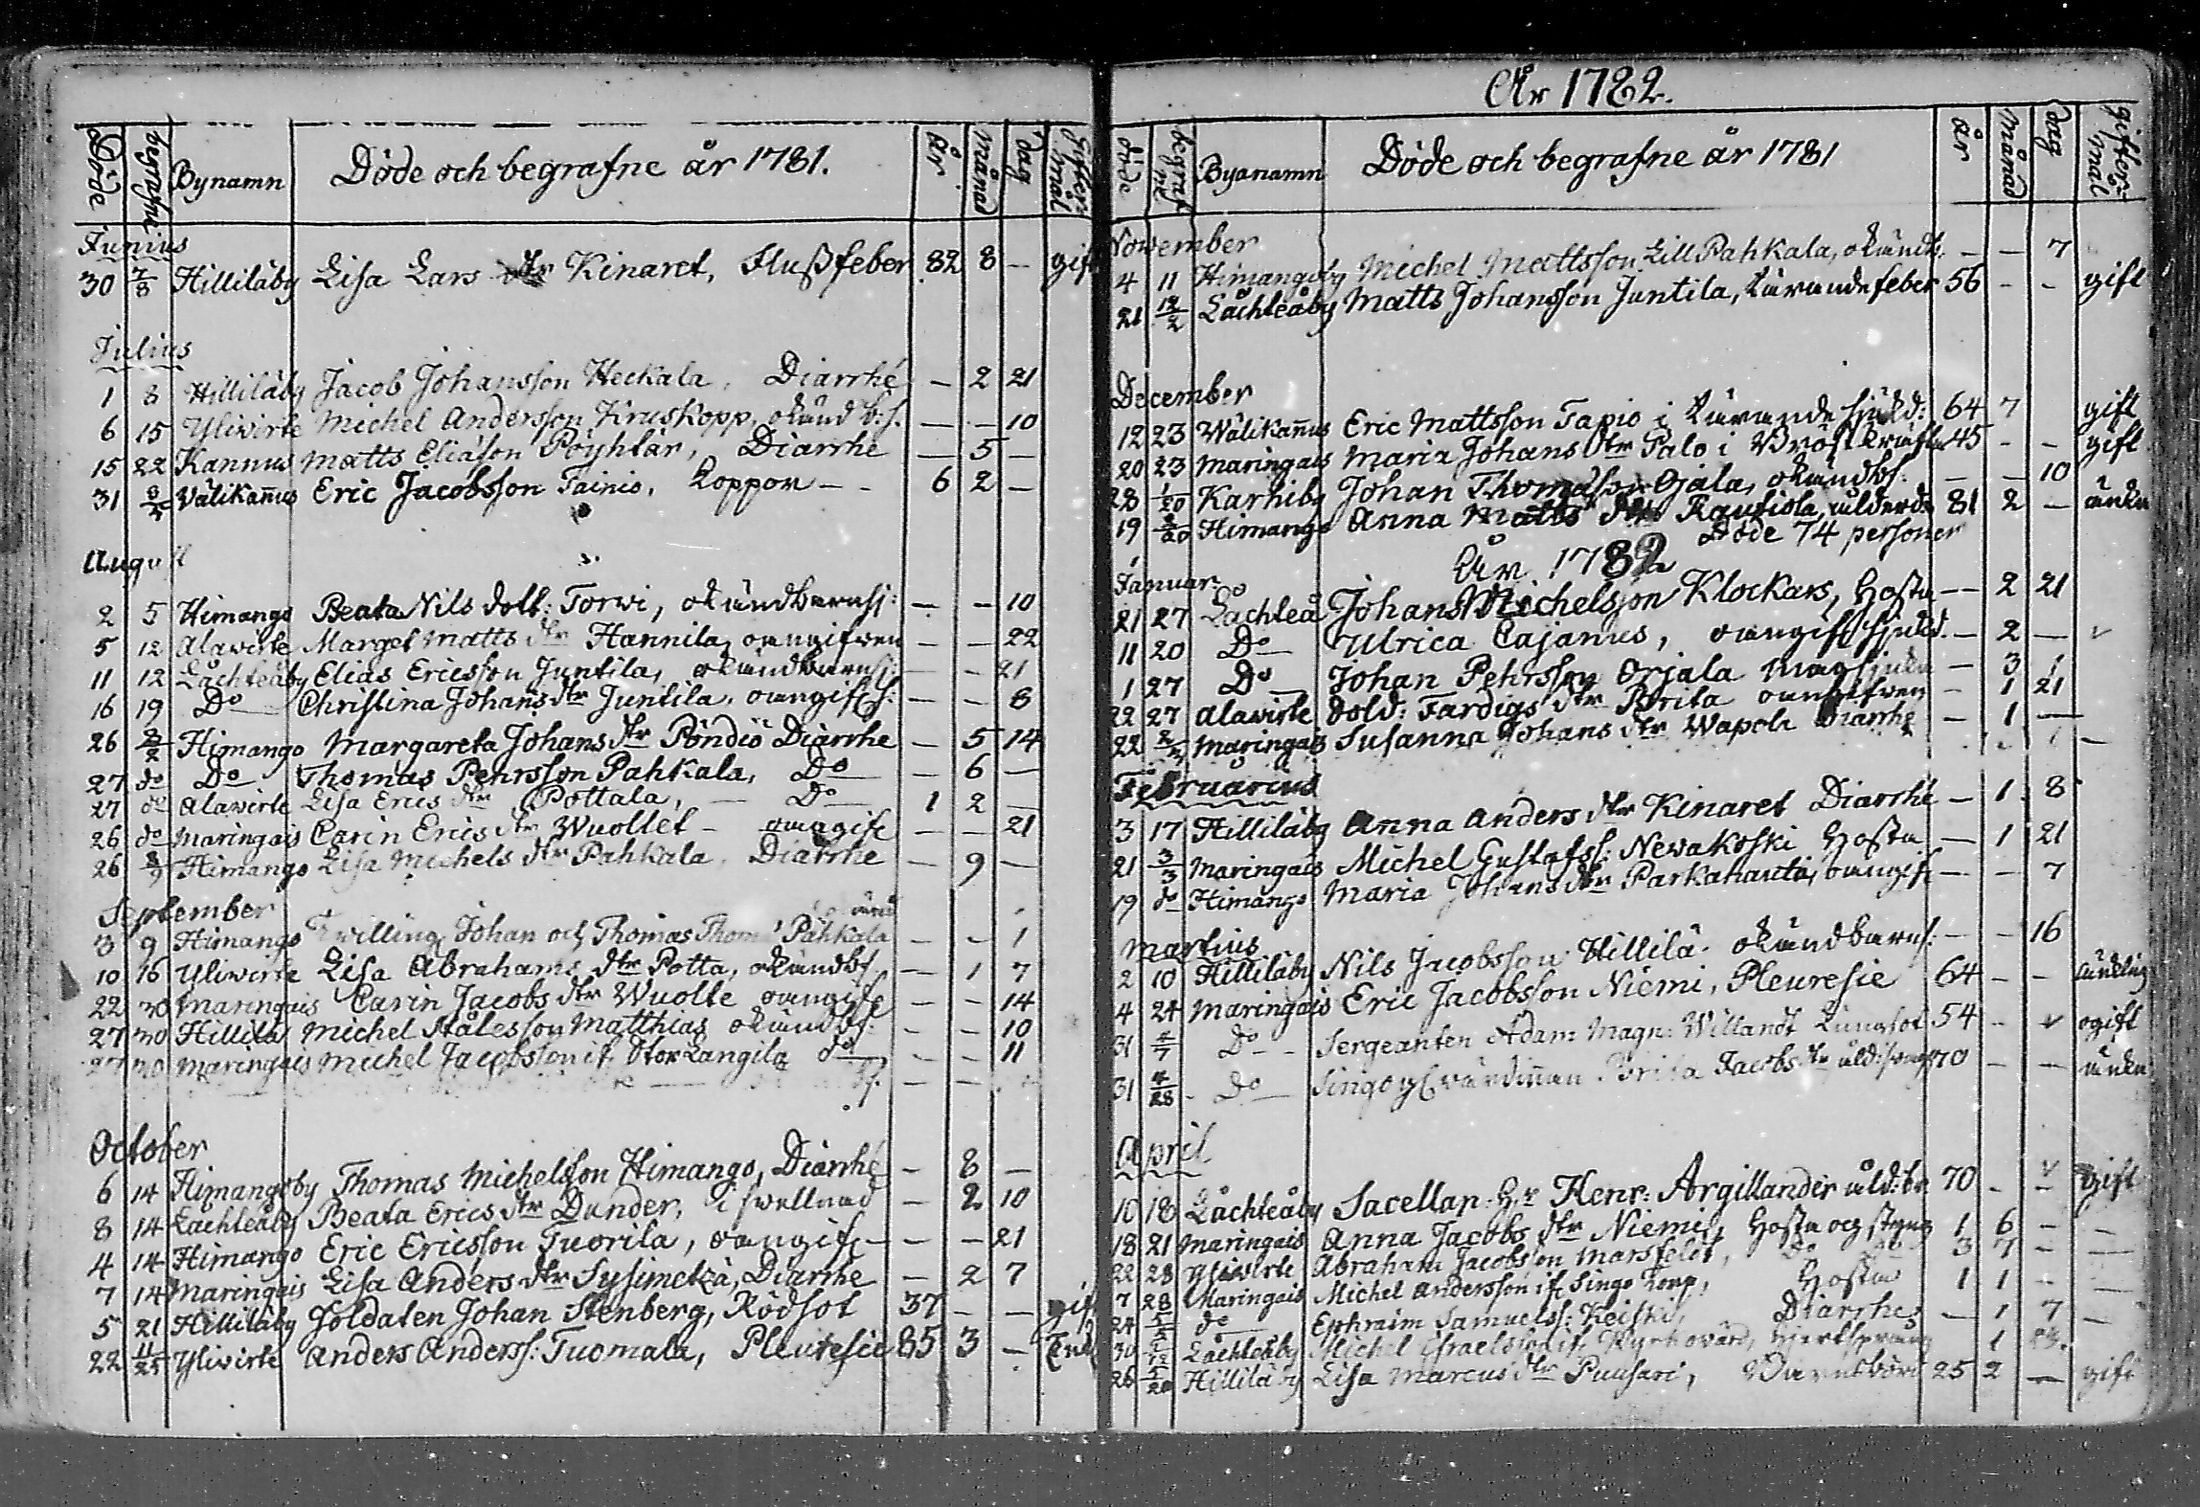 Döde begrafne Bynamn Döde och begrafne år 1781. år månad dag gifter mål
Junius
30 7/8 Hilliläby Lisa Lars dtr Kinaret, Flußfeber 82 8 — gift
Julius
1 8 Hilliläby Jacob Johansson Heckala, Diarrhé — 2 21
6 15 Yliwirte Michel Andersson Kruskopp, okänd b:s. — — 10
15 22 Kannus Matts Eliasson Pöyhtär, Diarrhe — 5 —
31 Wälikan̄us Eric Jacobsson Tainio, Koppor — 6 2 —
August
2 5 Himango Beata Nils dott: Torwi, okändbarnsj: — — 10
5 12 Alawirte Marget Matts dtr Hannila, oangifwen — — 22
11 12 Låchteåby Elias Ericsson Juntila, okändbarnsj: — — 21
16 19 Do Christina Johans dtr Juntila, oangif: — — 8
26 2/2 Himango Margareta Johans dtr Pöndiö Diarrhe — 5 14
27 do Do Thomas Pehrsson Pahkala, Do — 6 —
27 do Alawirte Lisa Erics dtr Pottala, — Do 1 2 —
26 do Maringais Carin Erics dtr Wuollet — oangif — — 21
26 8/9 Himango Lisa Michels dtr Pahkala, Diarrhe — 9 —
September
3 9 Himango Twilling Johan och Thomas Thom Pahkala — — 1
10 16 Yliwirte Lisa Abrahams dtr Potta, okändbs — 1 7
22 30 Maringais Carin Jacobs dtr Wuolle oangif — — 14
27 30 Hillilä Michel Stålesson Matthias okändbs: — — 10
27 30 Maringais Michel Jacobsson if. Stor Langila do — — 11
October
6 14 Himangoby Thomas Michelsson Himango, Diarrhé — 8 —
8 14 Lachteåby Beata Erics dtr Dunder, i swellnad — 2 10
4 14 Himango Eric Ericsson Tuorila, oangif — — 21
7 14 Maringais Lisa Anders dtr Sysimetzä, Diarrhe — 2 7
5 21 Hilliläby Soldaten Johan Stenberg, Rödsot 37 — — gift
22 11/25 Yliwirte Anders Anderss: Tuomala, Pleuresie 85 3 —
År 1782.
döde begrafne Byanamn Döde och begrafne år 1781 år månad dag gifter mål
November
4 11 Himangoby Michel Mattsson Lill Pahkala, okändb: — — 7
21 12/2 Låchteåby Matts Johansson Juntila, Tärandefeber 56 - - gift
December
12 23 Wälikan̄us Eric Mattsson Tapio i Tärande sjukd: 64 7 gift
20 23 Maringais Maria Johans dtr Palo i Bröstkräfta 45 - - gift
28 1/20 Karhiby Johan Thomasson Ojala, okändbs. — — 10
19 Himango Anna Matts dtr Rautiola, ålderd 81 2 — änka
Döde 74 personer
År 1782
Januar:
21 27 Låchteå Johans Michelsson Klockars, Hosta — 2 21
11 20 Do Ulrica Cajanus, oangif sjukd. — 2 —
1 27 Do Johan Pehrsson Orjala Magsjuka — 3 1
22 27 Alawirte Sold: Fardigs dtr Brita oangifwen — 1 21
22 Maringais Susanna Johans dtr Wapola Diarrhe — 1 —
Februarius
3 17 Hilliläby Anna Anders dtr Kinaret Diarrhé — 1 8
21 3/3 Maringais Michel Gustafss: Newakoski Hosta — 1 21
19 do Himango Maria Johans dtr Parkahanta, oangif — — 7
Martius
2 10 Hilliläby Nils Jacobsson Hillilä. okändbarns: — — 16
4 24 Maringais Eric Jacobsson Niemi, Pleuresie 64 - - änkling
31 4/7 Do Sergeanten Adam Magn: Willandt Lungsot 54 - ogift
31 4/28 Do Singoyl: Brita Jacobs dtr 70 - — änka
April
10 18 Låchteåby Sacellan. Hr Henr: Argillander åld:br. 70 - gift
18 21 Maringais Anna Jacobs dtr Niemi, Hosta och styng 1 6 —
22 28 Yliwirte Abraham Jacobsson Marsfelt, do 3 7 —
7 28 Maringais Michel Andersson if Singo torp, Hosta 1 1 —
24 do Ephraim Samuelss: Keiski, Diarrhe — 1 7
30 Låchteåby Michel Israelsson if. 1
26 5/20 Hilliläby Lisa Marcus dtr Puusari, Barnsbörd 25 2 — gift